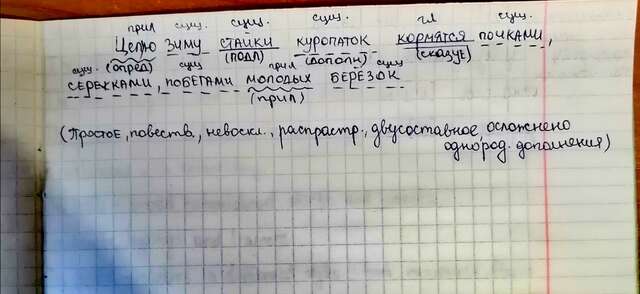 прил сущ. сущ. сущ. гл сущ.
Целую зиму стайки куропаток кормятся почками,
сущ. (опред) сущ (подл) прил (дополн) сущ (сказуе)
сережками, побегами молодых берёзок
(прил)
(Простое, повеств., невоскл., распрастр., двусоставное, осложнено
однород. дополнения)